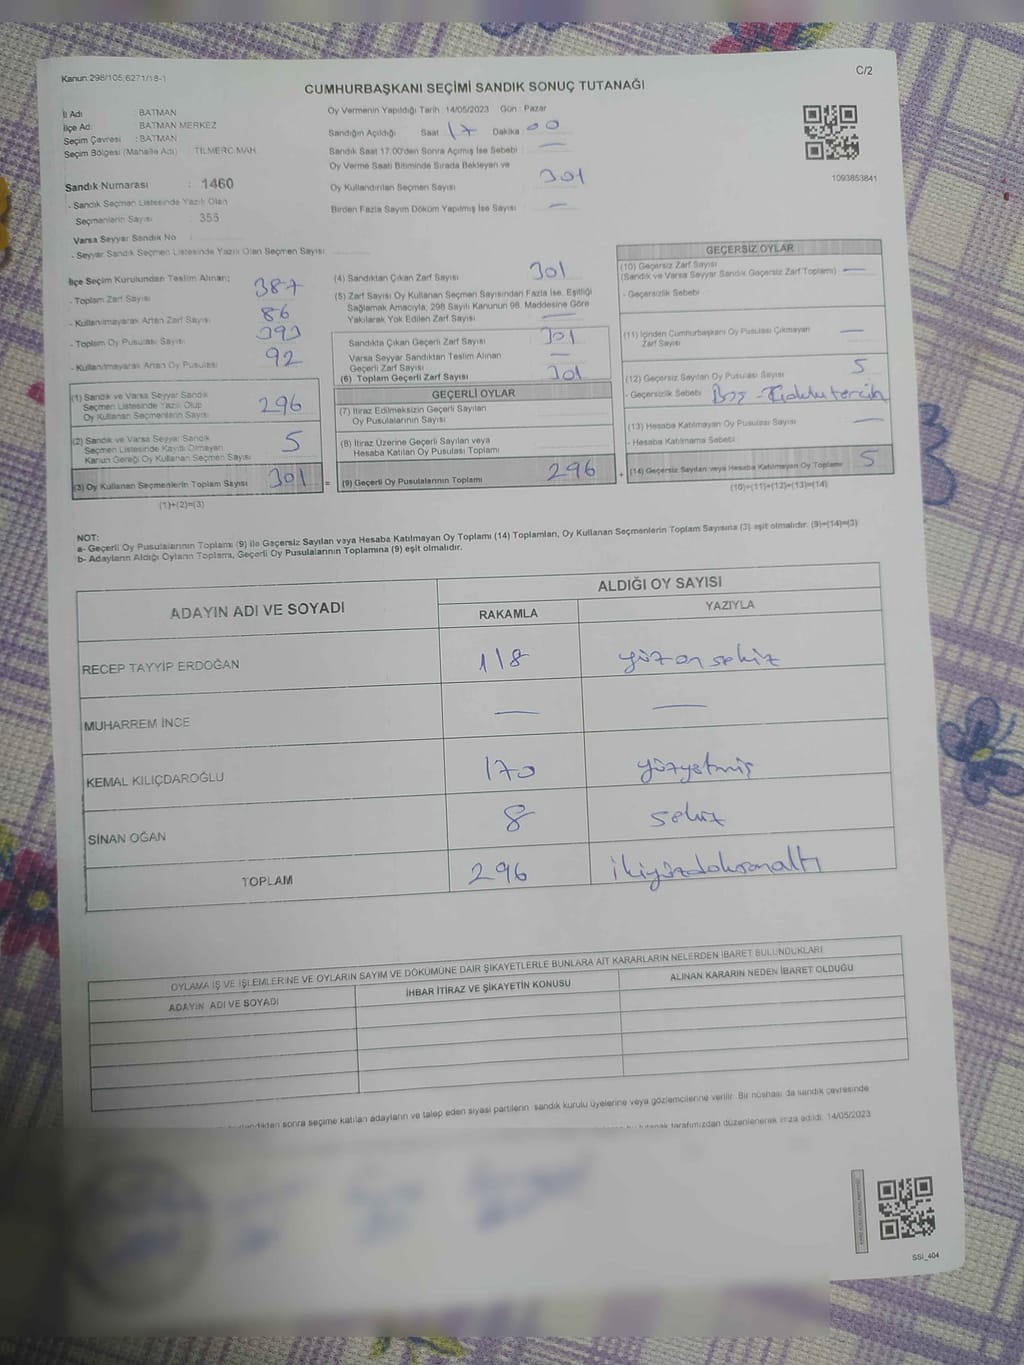 Kanun:298/105,6271/18-1
C/2
CUMHURBAŞKANI SEÇİMİ SANDIK SONUÇ TUTANAĞI
İl Adı : BATMAN
İlçe Adı : BATMAN MERKEZ
Seçim Çevresi : BATMAN
Seçim Bölgesi (Mahalle Adı) : TILMERC MAH.
Sandık Numarası : 1460
- Sandık Seçmen Listesinde Yazılı Olan
Seçmenlerin Sayısı : 355
Varsa Seyyar Sandık No :
- Seyyar Sandık Seçmen Listesinde Yazılı Olan Seçmen Sayısı:
Oy Vermenin Yapıldığı Tarih : 14/05/2023 Gün : Pazar
Sandığın Açıldığı Saat 17 Dakika 00
Sandık Saat 17:00'den Sonra Açmış İse Sebebi —
Oy Verme Saati Bitiminde Sırada Bekleyen ve
Oy Kullandırılan Seçmen Sayısı 301
Birden Fazla Sayım Döküm Yapılmış İse Sayısı —
1093853841
İlçe Seçim Kurulundan Teslim Alınan;
- Toplam Zarf Sayısı 387
- Kullanılmayarak Artan Zarf Sayısı 86
- Toplam Oy Pusulası Sayısı 393
- Kullanılmayarak Artan Oy Pusulası 92
(1) Sandık ve Varsa Seyyar Sandık
Seçmen Listesinde Yazılı Olup
Oy Kullanan Seçmenlerin Sayısı 296
(2) Sandık ve Varsa Seyyar Sandık
Seçmen Listesinde Kaydı Olmayan
Kanun Gereği Oy Kullanan Seçmen Sayısı 5
(3) Oy Kullanan Seçmenlerin Toplam Sayısı 301 =
(1)+(2)=(3)
(4) Sandıktan Çıkan Zarf Sayısı 301
(5) Zarf Sayısı Oy Kullanan Seçmen Sayısından Fazla İse, Eşitliği
Sağlamak Amacıyla, 298 Sayılı Kanunun 98. Maddesine Göre
Yakılarak Yok Edilen Zarf Sayısı —
Sandıkta Çıkan Geçerli Zarf Sayısı 301
Varsa Seyyar Sandıktan Teslim Alınan
Geçerli Zarf Sayısı —
(6) Toplam Geçerli Zarf Sayısı 301
GEÇERLİ OYLAR
(7) İtiraz Edilmeksizin Geçerli Sayılan
Oy Pusulasının Sayısı
(8) İtiraz Üzerine Geçerli Sayılan veya
Hesaba Katılan Oy Pusulası Toplamı
(9) Geçerli Oy Pusulalarının Toplamı 296 +
GEÇERSİZ OYLAR
(10) Geçersiz Zarf Sayısı
(Sandık ve Varsa Seyyar Sandık Geçersiz Zarf Toplamı) —
- Geçersizlik Sebebi
(11) İçinden Cumhurbaşkanı Oy Pusulası Çıkmayan
Zarf Sayısı —
(12) Geçersiz Sayılan Oy Pusulası Sayısı 5
- Geçersizlik Sebebi Boş -
(13) Hesaba Katılmayan Oy Pusulası Sayısı —
- Hesaba Katılmama Sebebi
(14) Geçersiz Sayılan veya Hesaba Katılmayan Oy Toplamı 5
(10)+(11)+(12)+(13)=(14)
NOT:
a- Geçerli Oy Pusulalarının Toplamı (9) ile Geçersiz Sayılan veya Hesaba Katılmayan Oy Toplamı (14) Toplamları, Oy Kullanan Seçmenlerin Toplam Sayısına (3) eşit olmalıdır. (9)+(14)=(3)
b- Adayların Aldığı Oyların Toplamı, Geçerli Oy Pusulalarının Toplamına (9) eşit olmalıdır.
ADAYIN ADI VE SOYADI
ALDIĞI OY SAYISI
RAKAMLA YAZIYLA
RECEP TAYYİP ERDOĞAN 118 yüzonsekiz
MUHARREM İNCE — —
KEMAL KILIÇDAROĞLU 170 yüzyetmiş
SİNAN OĞAN 8 sekiz
TOPLAM 296 ikiyüzdoksanaltı
OYLAMA İŞ VE İŞLEMLERİNE VE OYLARIN SAYIM VE DÖKÜMÜNE DAİR ŞİKAYETLERLE BUNLARA AİT KARARLARIN NELERDEN İBARET BULUNDUKLARI
ADAYIN ADI VE SOYADI İHBAR İTİRAZ VE ŞİKAYETİN KONUSU ALINAN KARARIN NEDEN İBARET OLDUĞU
sonra seçime katılan adayların ve talep eden siyasi partilerin sandık kurulu üyelerine veya gözlemcilerine verilir. Bir nüshası da sandık çevresinde
tutanak tarafımızdan düzenlenerek imza edildi. 14/05/2023
SSI_404